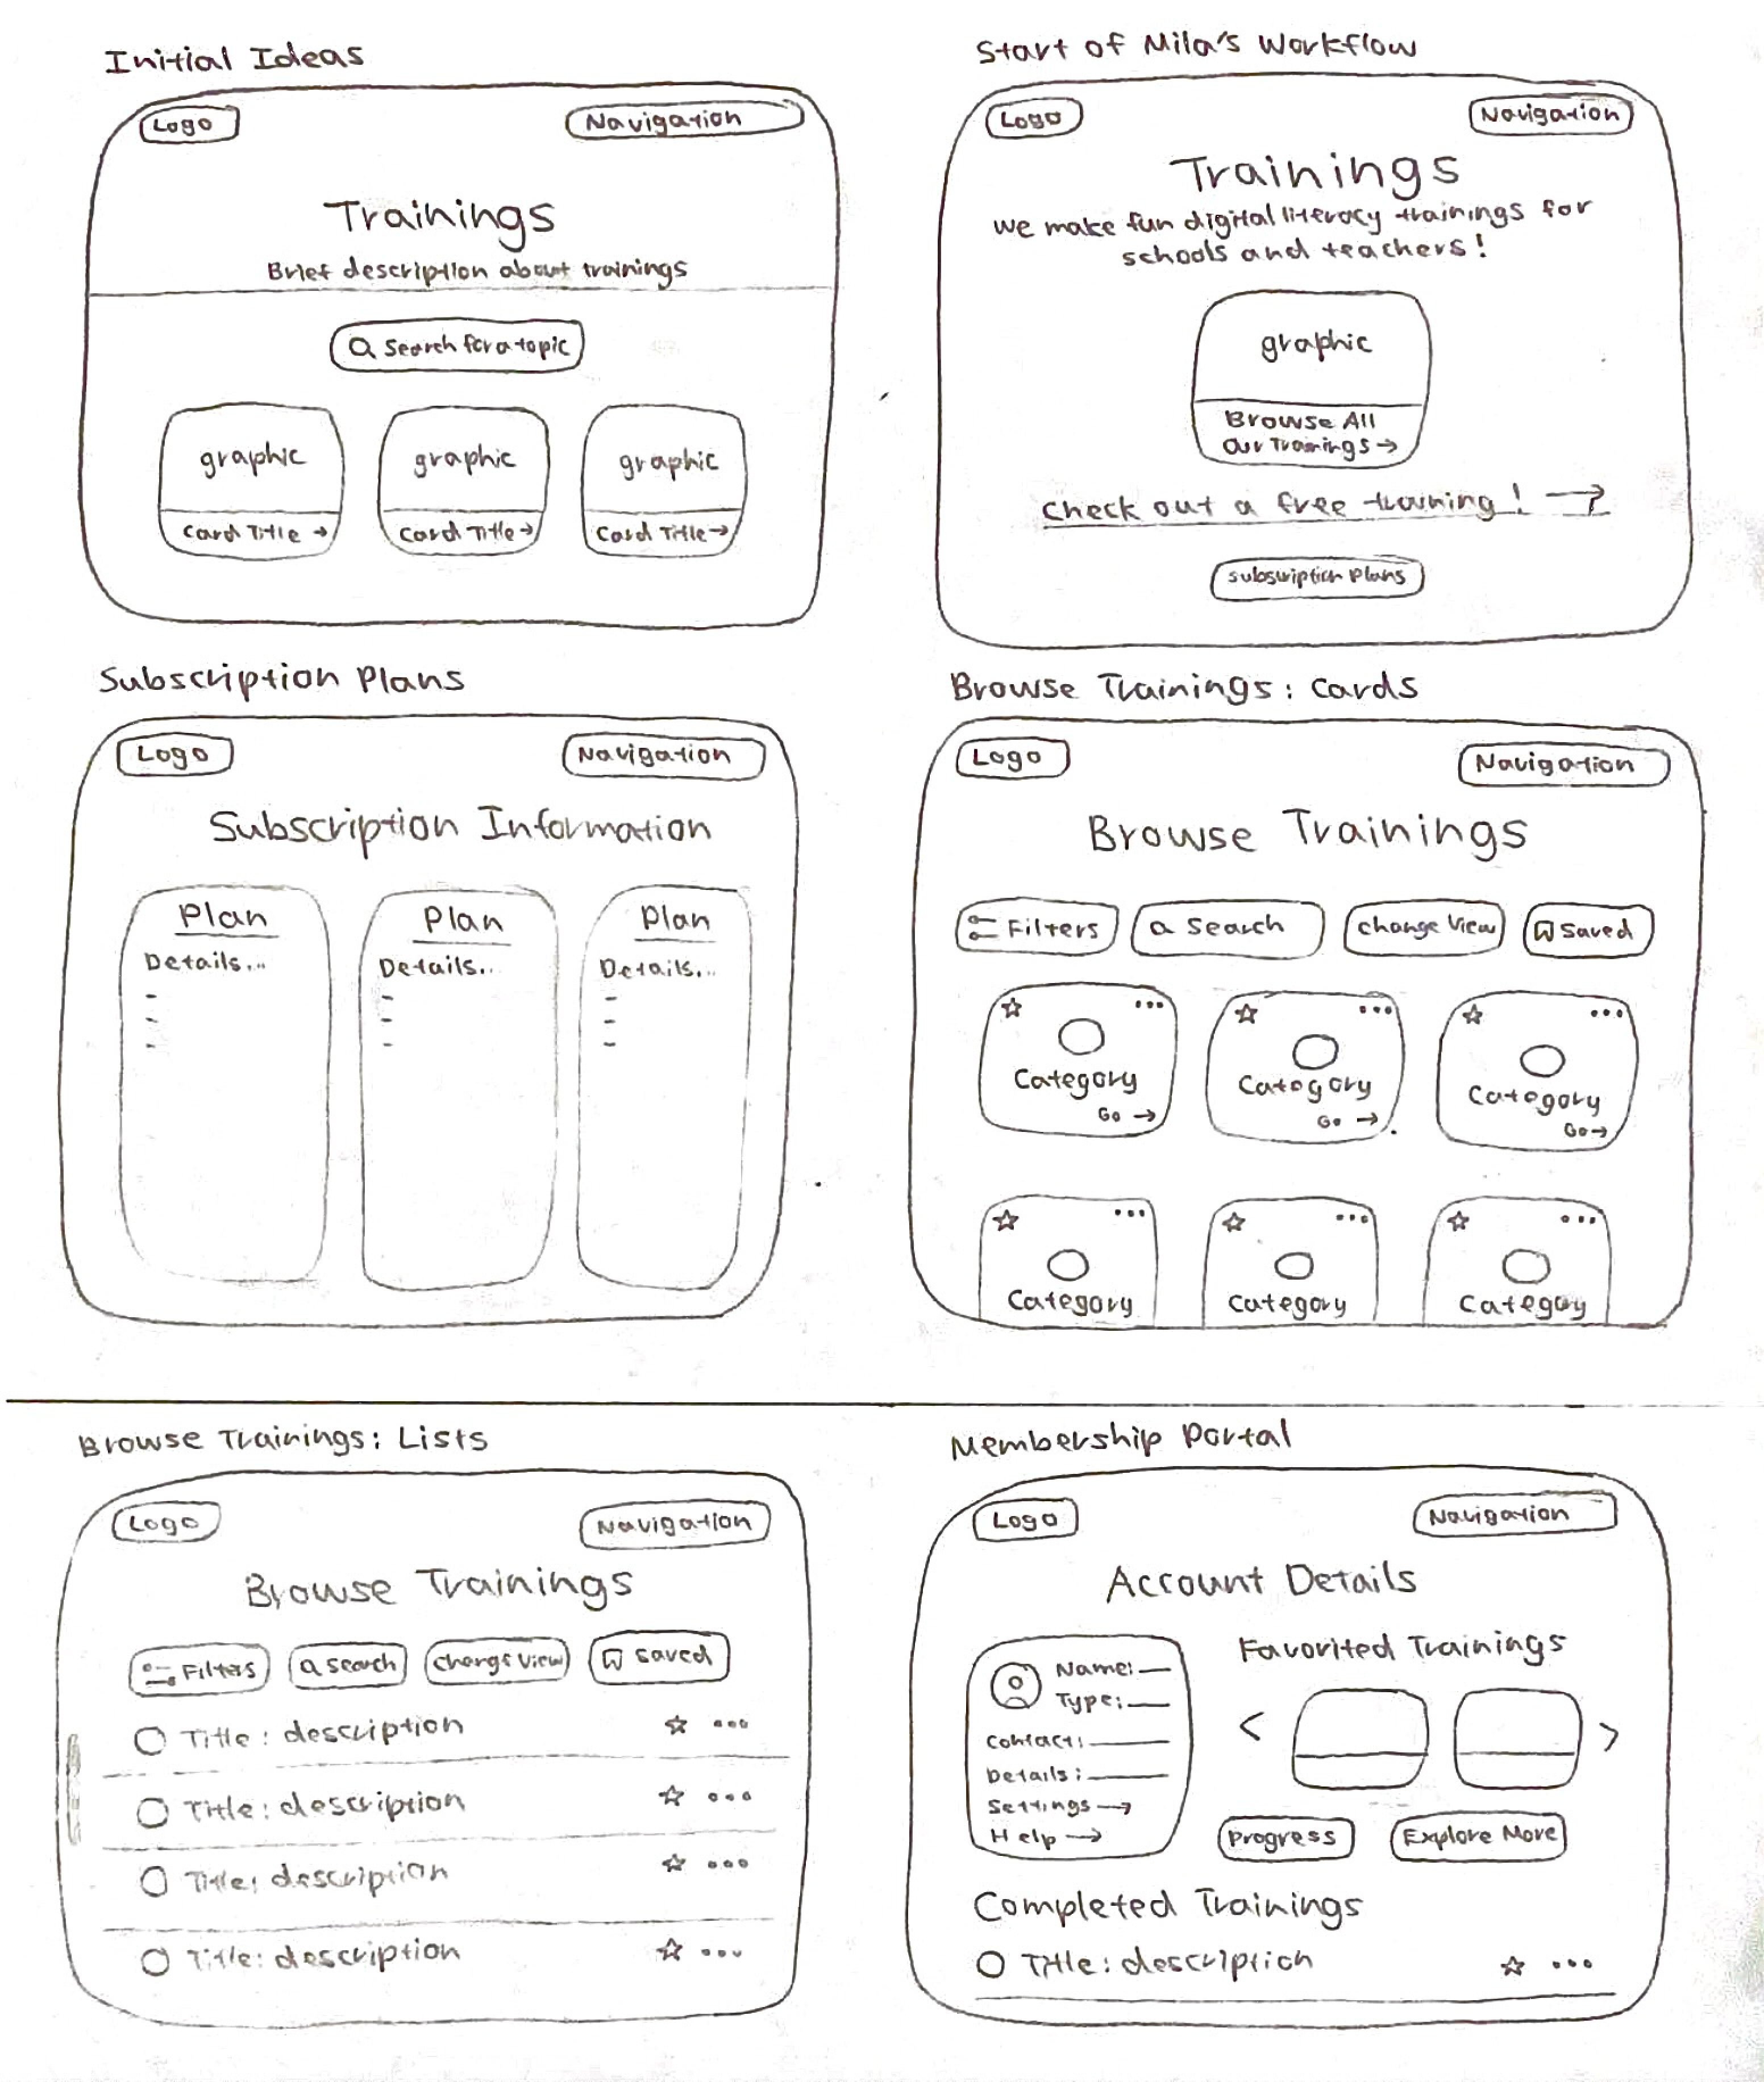 Initial Ideas
Logo
Navigation
Trainings
Brief description about trainings
Search for a topic
graphic
graphic
graphic
Card Title →
Card Title →
Card Title →
Start of Mila's Workflow
Logo
Navigation
Trainings
We make fun digital literacy trainings for
schools and teachers!
graphic
Browse All
Our Trainings →
Check out a free training! →
Subscription Plans
Subscription Plans
Logo
Navigation
Subscription Information
Plan
Details...
-
-
-
Plan
Details...
-
-
-
Plan
Details...
-
-
-
Browse Trainings: Cards
Logo
Navigation
Browse Trainings
Filters
Search
Change View
Saved
...
Category
Go →
...
Category
Go →
...
Category
Go →
...
Category
...
Category
...
Category
Browse Trainings: Lists
Logo
Navigation
Browse Trainings
Filters
Search
Change View
Saved
Title: description ...
Title: description ...
Title: description ...
Title: description ...
Membership Portal
Logo
Navigation
Account Details
Name:
Type:
Contact:
Details:
Settings →
Help →
Favorited Trainings
< >
Progress
Explore More
Completed Trainings
Title: description ...